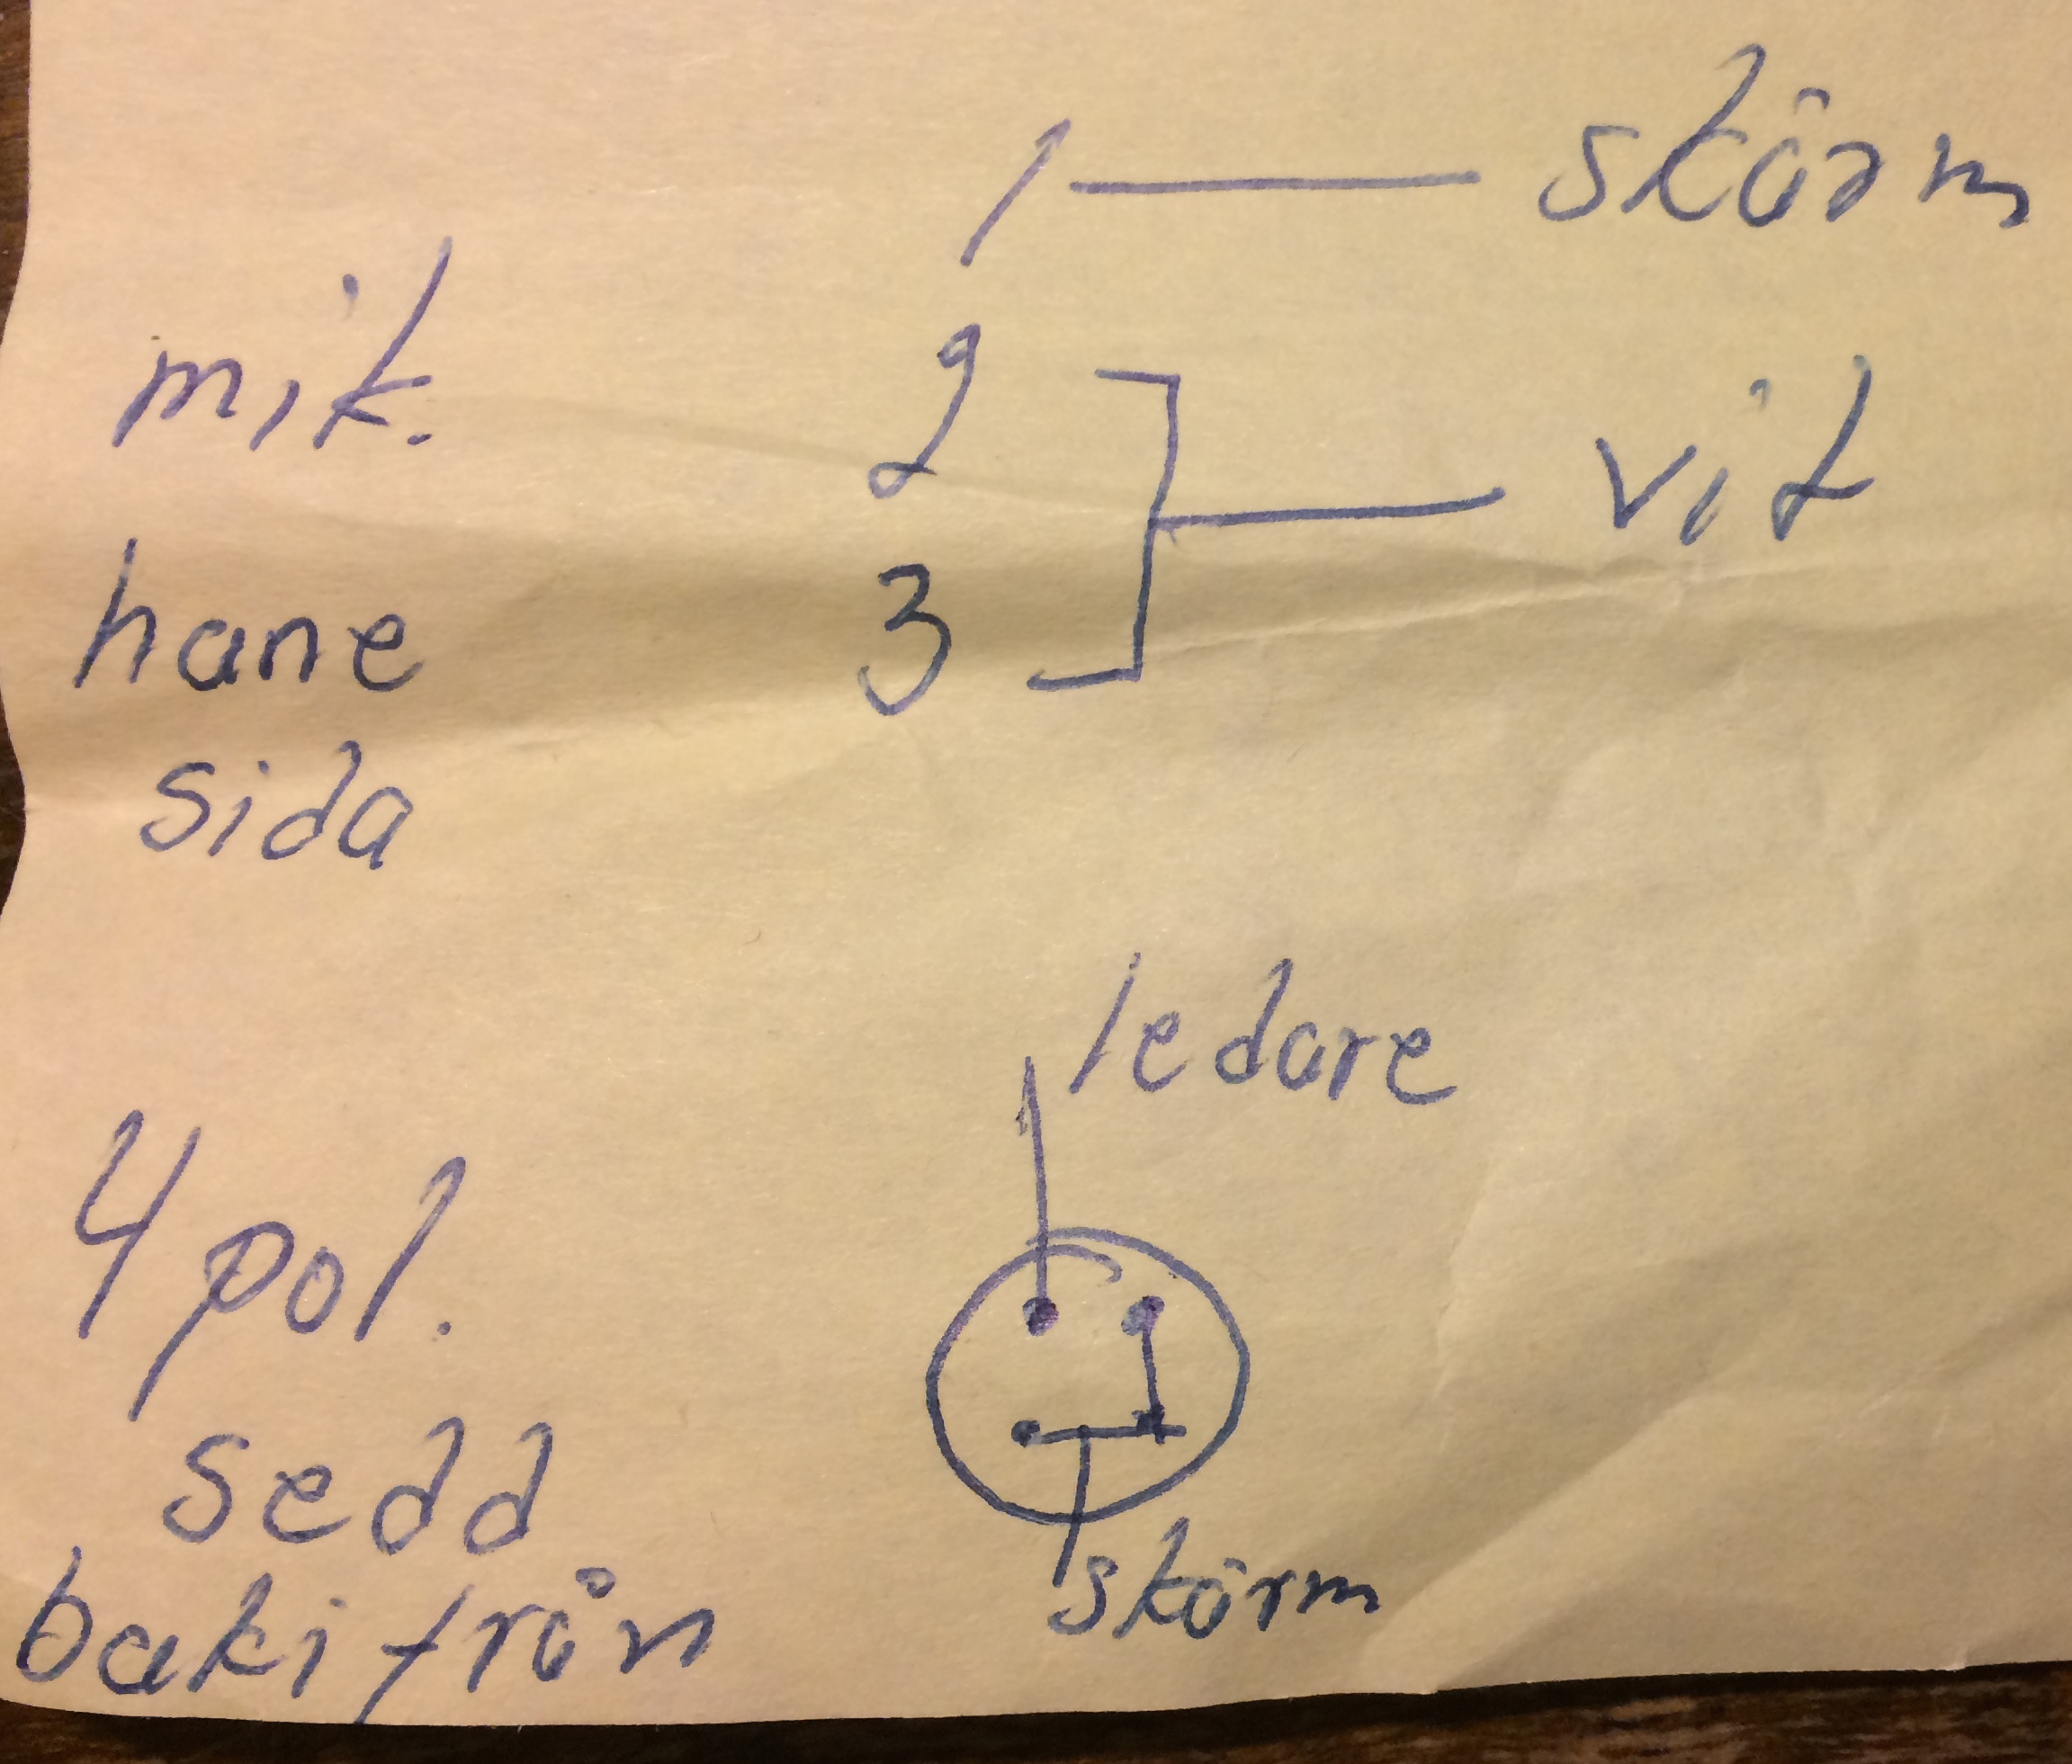 1 — skärm
mik. 2
vit
hane 3
sida
ledare
4 pol.
sedd
bakifrån
skärm